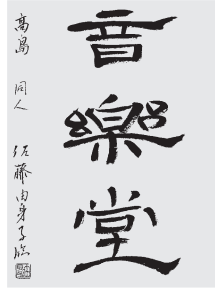 音樂堂
高島 同人 佐藤由身子臨